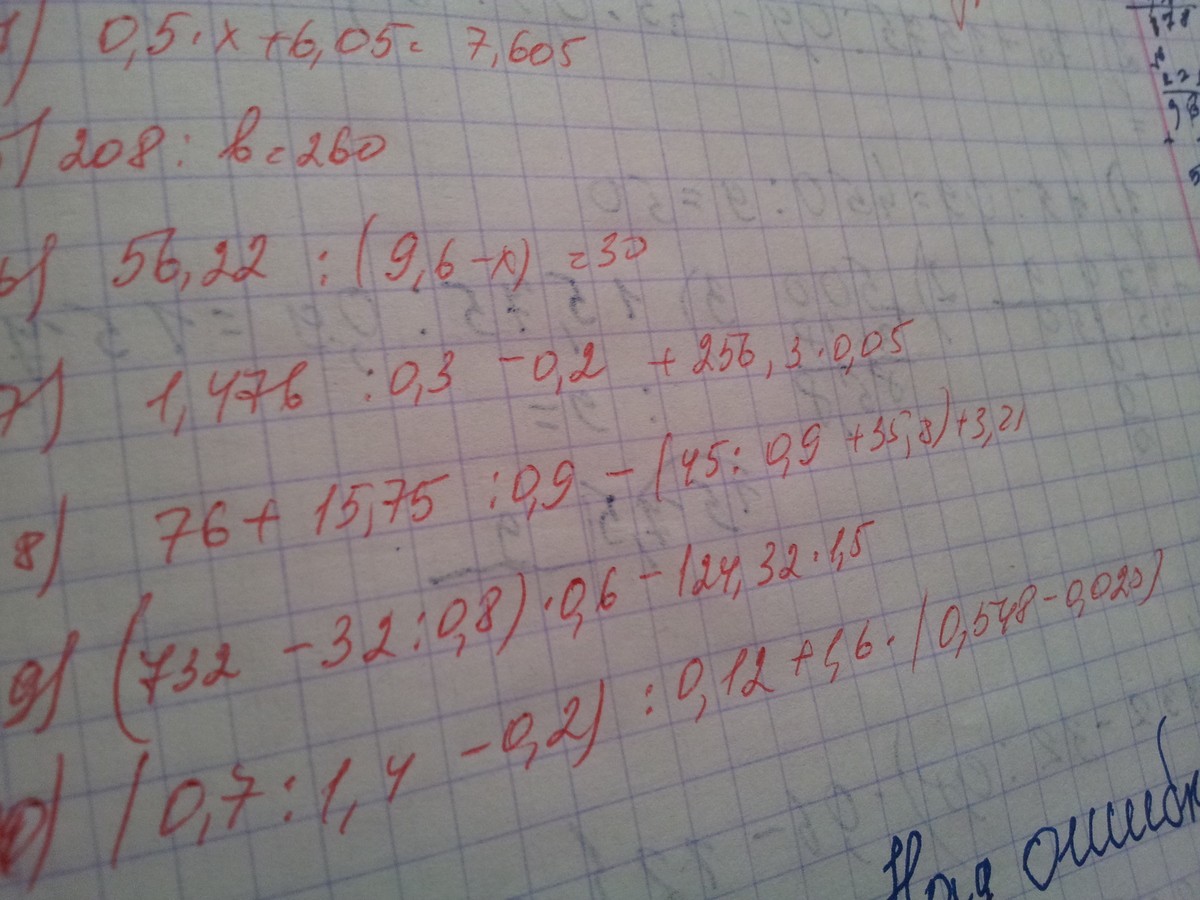 4) 0,5·x+6,05= 7,605
5) 208 : b=260
6) 56,22 :(9,6-x) =30
7) 1,476 :0,3 -0,2 +256,3·0,05
8) 76+ 15,75 :0,9 - (45: 0,9 +35,8)+3,21
9) (732 -32:0,8)·0,6 - (24,32·1,5
10) (0,7:1,4 -0,2) :0,12 +1,6·(0,548-0,023)
Над ошибк